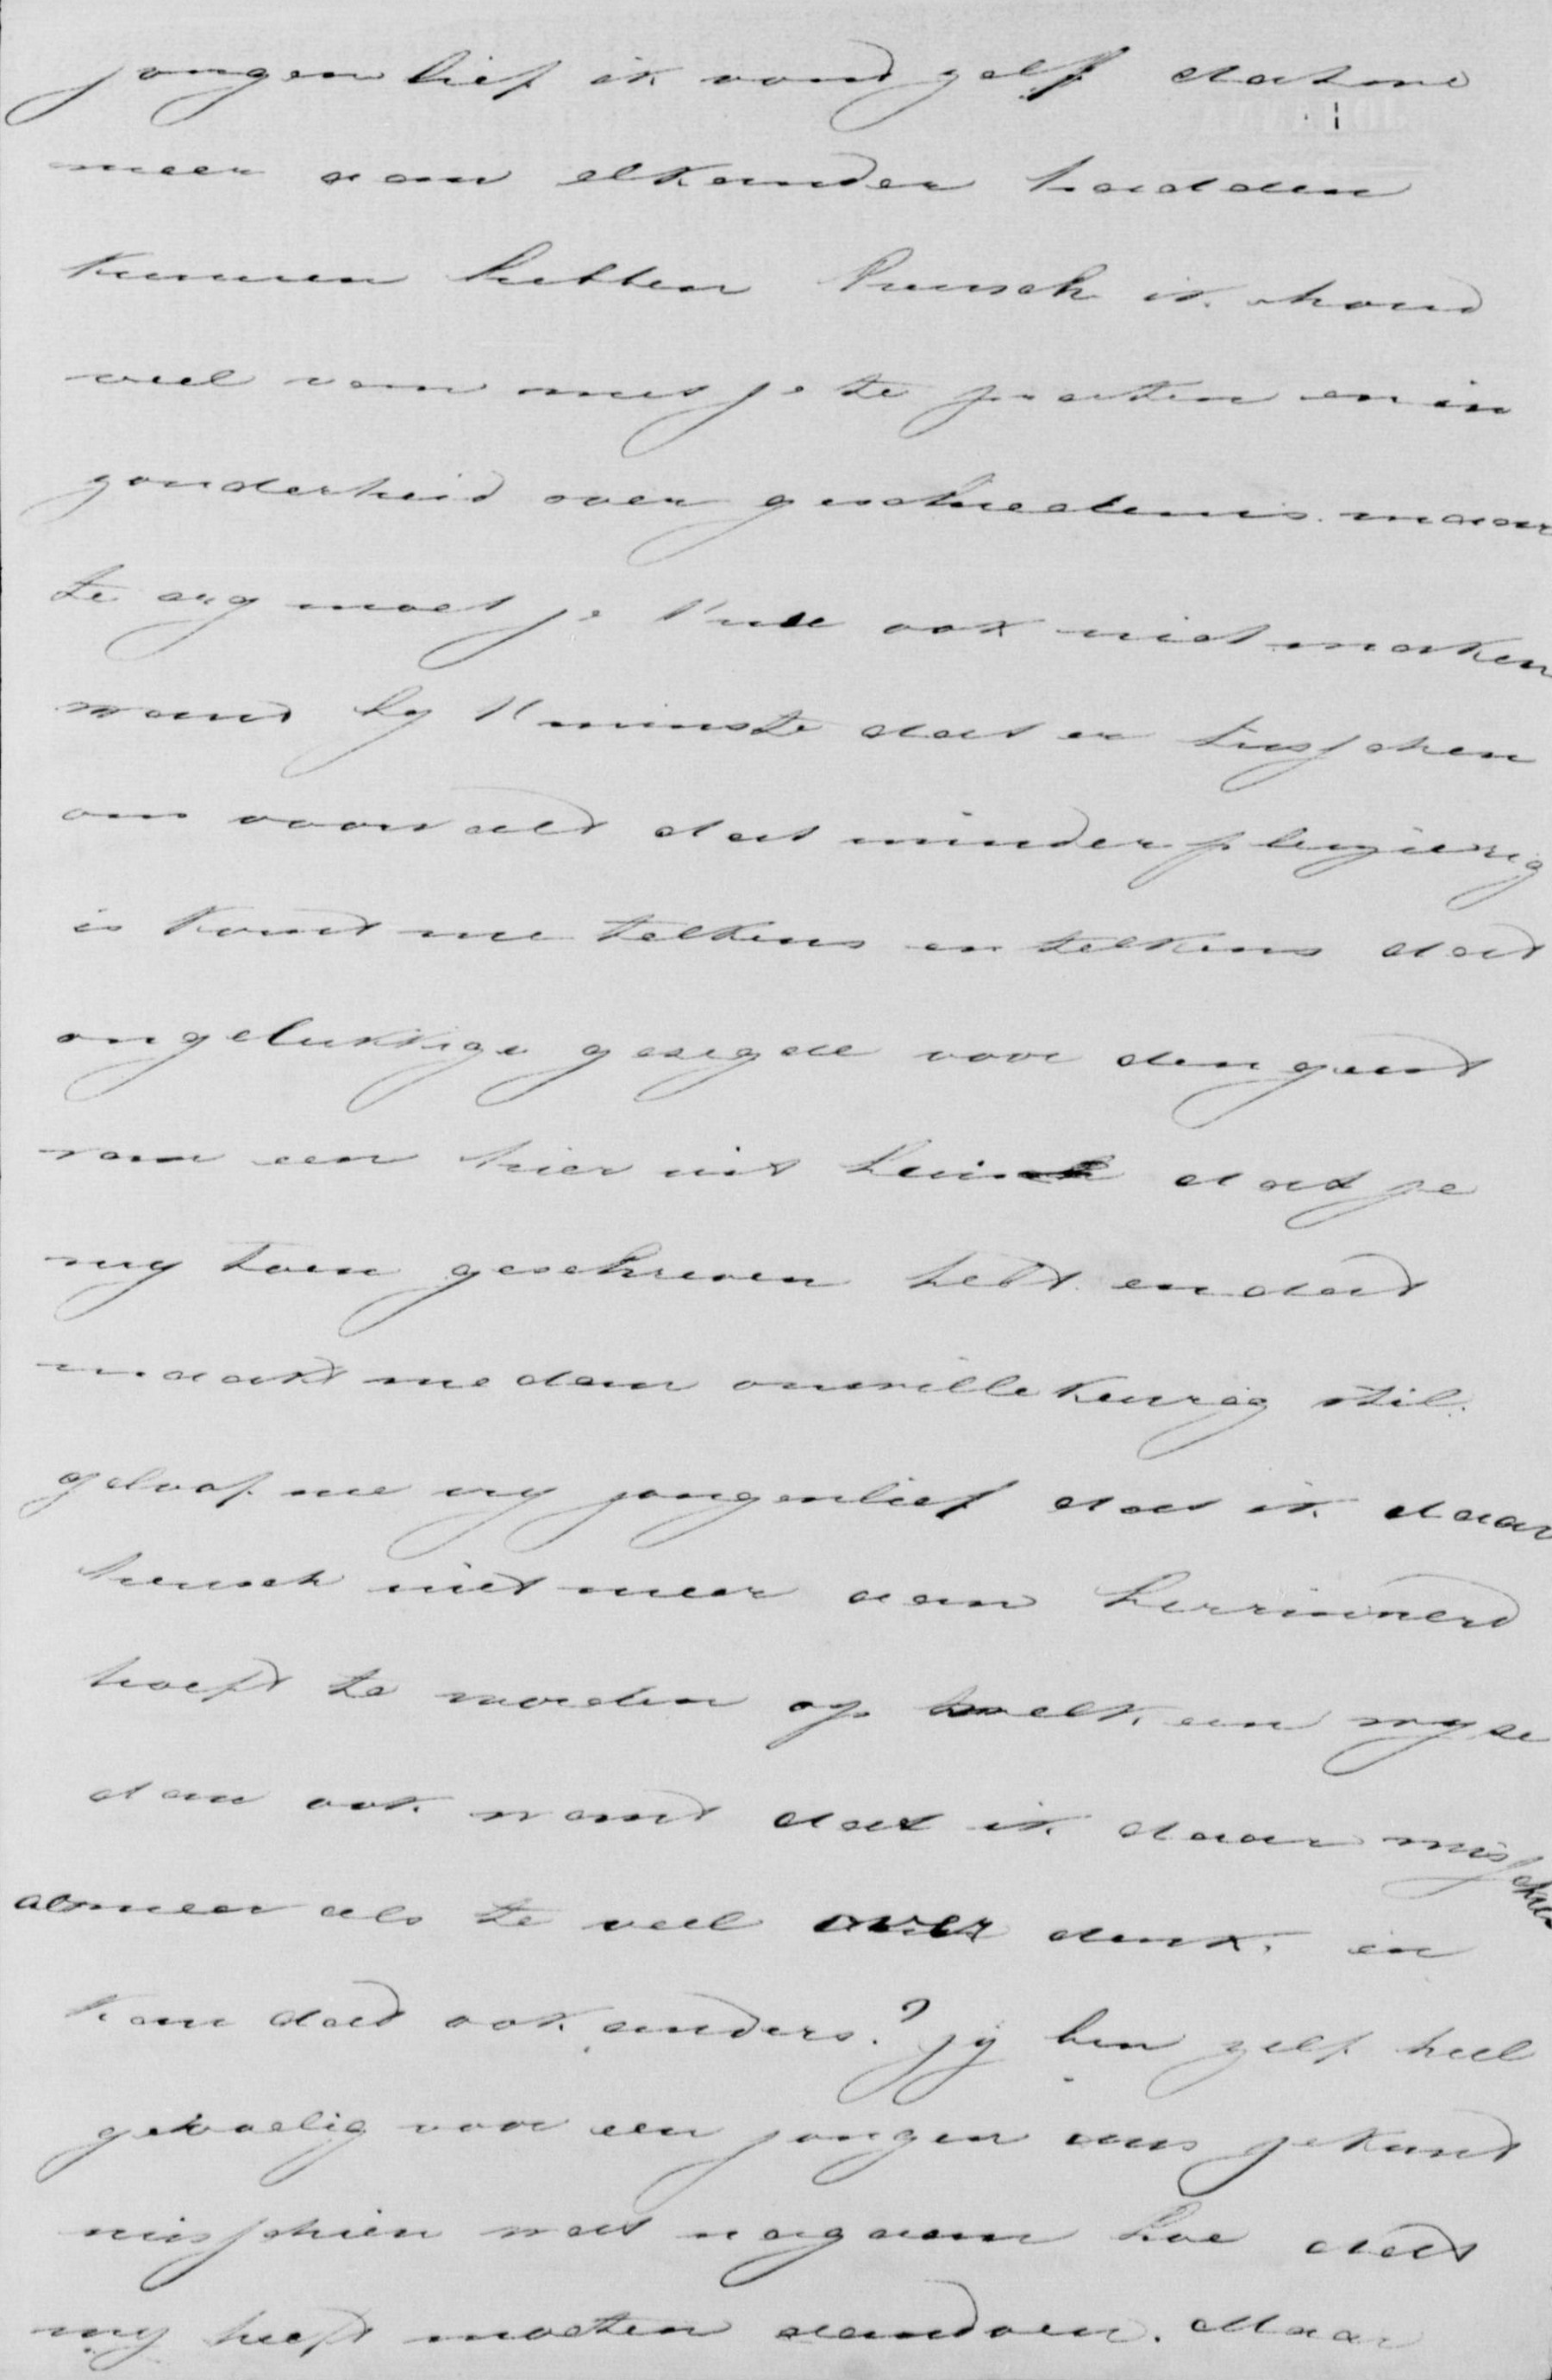 jongenlief ik vond zelf dat we
meer aan elkander hadden
kunnen hebben heusch ik houd
veel van met je te praten en in
zonderheid over geschiedenis maar
te erg moet je het ook niet maken
want by 't minste dat er tusschen
ons voorvald dat minder plezierig
is komt me telkens en telkens dat
ongelukkige gezegde voor den geest
van een hier uit huis dat je
my toen geschreven hebt en dat
maakt me dan onwillekeurig stil.
geloof me my jongenlief dat ik daar
heusch niet meer aan herrinnerd
hoeft te worden op welk een wyze
dan ook want dat ik daar misschien
al meer als te veel over denk. en
kan dat ook anders? jy ben zelf heel
gevoelig voor een jongen dus je kunt
misschien wat nagaan hoe dat
my heeft moeten aandoen. Maar